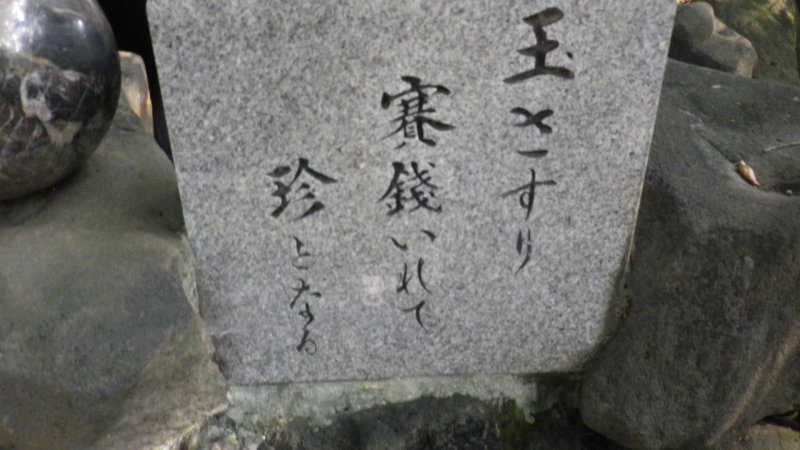 玉さすり
賽錢いれて
珍となる